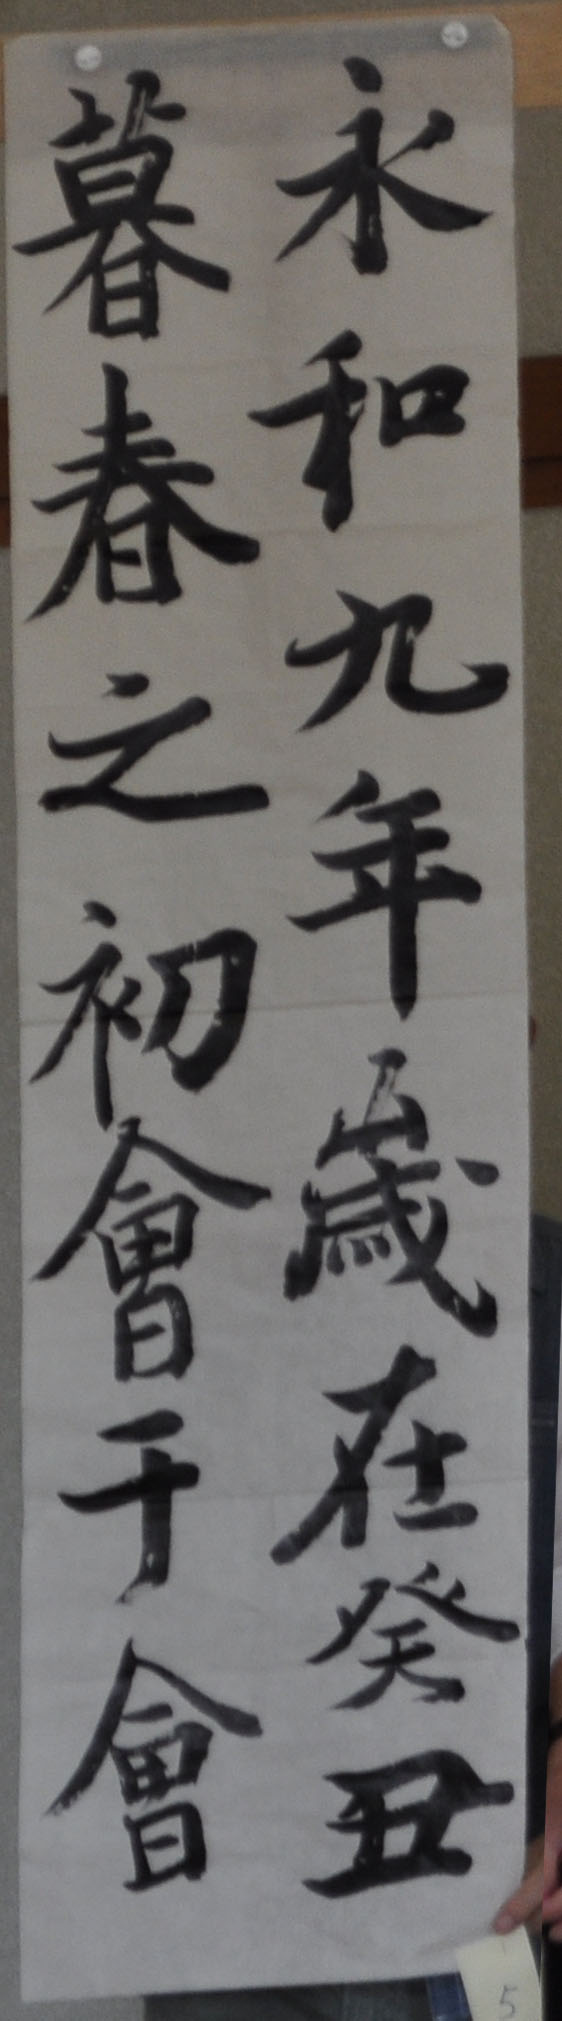 永和九年歳在癸丑
暮春之初會于會
5